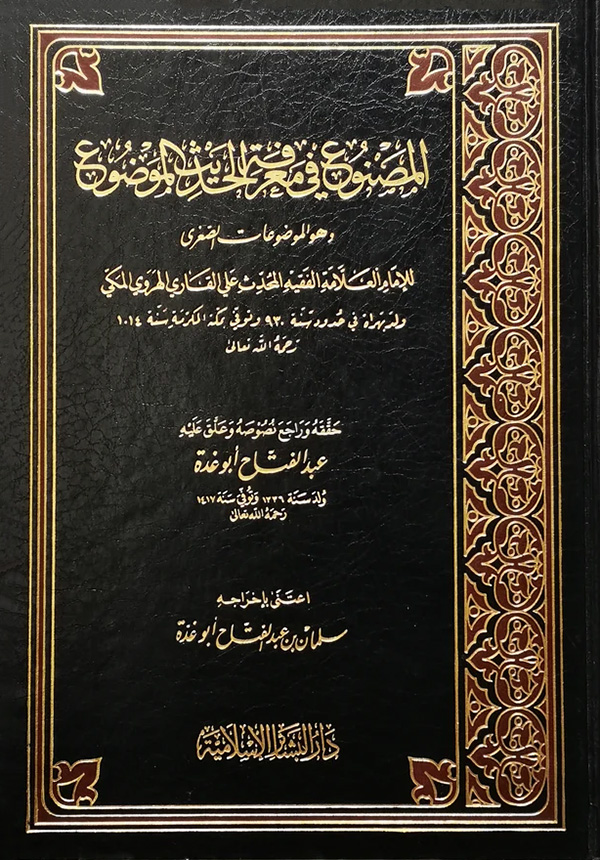 المصنوع في معرفة الحديث الموضوع
وهو الموضوعات الصغرى
للإمام العلّامة الفقيه المحدّث علي القاري الهروي المكي
ولد بهراة في حدود سنة ٩٣٠ وتوفي بمكة المكرمة سنة ١٠١٤
رحمه الله تعالى
حقّقه وراجع نصوصه وعلّق عليه
عبد الفتاح أبو غدة
ولد سنة ١٣٣٦ وتوفي سنة ١٤١٧
رحمه الله تعالى
اعتنى بإخراجه
سلمان بن عبد الفتاح أبو غدة
دار البشائر الإسلامية